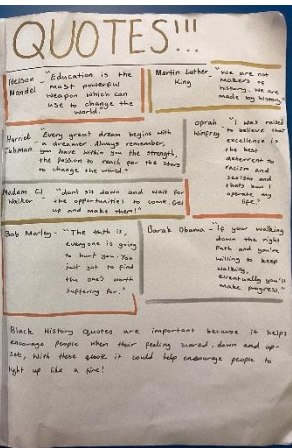 QUOTES!!!
Nelson
Mandel
"Education is the
most powerful
weapon which can
use to change the
world."
Martin Luther
King
"We are not
makers of
history. We are
made by history"
Harriet
Tubman
"Every great dream begins with
a dreamer. Always remember,
you have within you the strength,
the passion to reach for the stars
to change the world."
Oprah
Winfrey
"I was raised
to believe that
excellence is
the best
deterrent to
racism and
sexism and
thats how I
operate my
life."
Madam CJ
Walker
"dont sit down and wait for
the opportunities to come. Get
up and make them!"
Bob Marley - "The truth is,
everyone is going
to hurt you. You
just got to find
the one's worth
suffering for."
Barak Obama - "if your walking
down the right
Path and you're
willing to keep
walking,
eventually you'll
make progress."
Black History Quotes are important because it helps
encourage people when their feeling scared, down and up-
set, With these quote it could help encourage people to
light up like a fire!